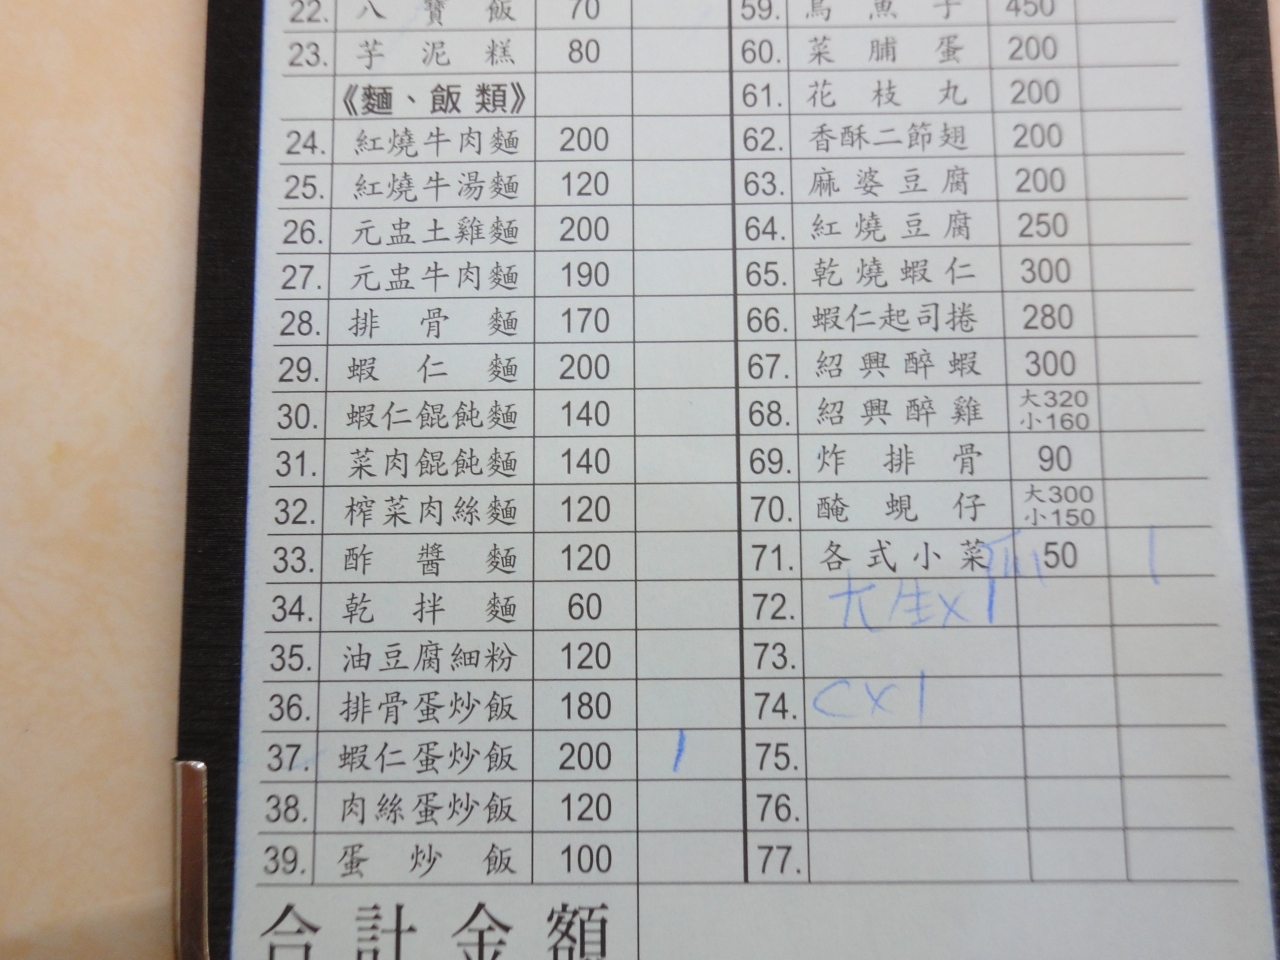 22. 八寶飯 70
23. 芋泥糕 80
《麵、飯類》
24. 紅燒牛肉麵 200
25. 紅燒牛湯麵 120
26. 元盅土雞麵 200
27. 元盅牛肉麵 190
28. 排骨麵 170
29. 蝦仁麵 200
30. 蝦仁餛飩麵 140
31. 菜肉餛飩麵 140
32. 榨菜肉絲麵 120
33. 酢醬麵 120
34. 乾拌麵 60
35. 油豆腐細粉 120
36. 排骨蛋炒飯 180
37. 蝦仁蛋炒飯 200 1
38. 肉絲蛋炒飯 120
39. 蛋炒飯 100
合計金額
59. 烏魚子 450
60. 菜脯蛋 200
61. 花枝丸 200
62. 香酥二節翅 200
63. 麻婆豆腐 200
64. 紅燒豆腐 250
65. 乾燒蝦仁 300
66. 蝦仁起司捲 280
67. 紹興醉蝦 300
68. 紹興醉雞 大320 小160
69. 炸排骨 90
70. 醃蜆仔 大300 小150
71. 各式小菜 50 1
72. 大生x1
73.
74. Cx1
75.
76.
77.